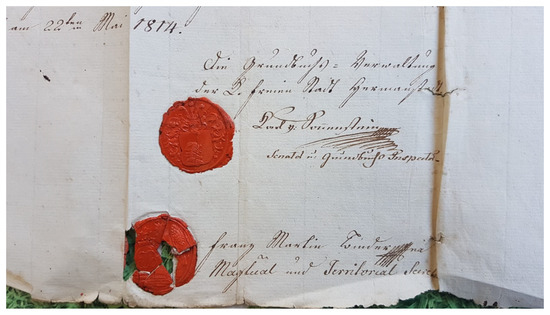 am 22ten Mai 1814.
Die Grundbuchs = Verwaltung
der K. freien Stadt Hermanstadt
v. Sonnenstein
Senator u. Grundbuchs Inspector
Franz Martin Binder
Magtual und Territorial